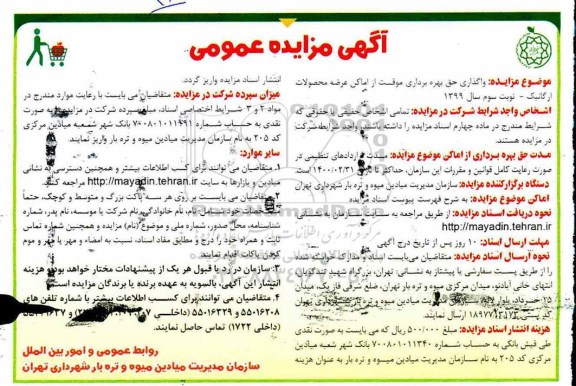 آگهی مزایده عمومی
موضوع مزایده: واگذاری حق بهره برداری موقت از اماکن عرضه محصولات
ارگانیک - نوبت سوم سال ۱۳۹۹
اشخاص واجد شرایط شرکت در مزایده: تمامی اشخاص حقیقی یا حقوقی که
شرایط مندرج در ماده چهارم اسناد مزایده را داشته باشند، واجد شرایط شرکت
در مزایده هستند.
مدت حق بهره برداری از اماکن موضوع مزایده: مدت قراردادهای تنظیمی در
صورت رعایت کامل قوانین و مقررات این سازمان، حداکثر تا ۱۴۰۰/۰۲/۳۱ است.
دستگاه برگزارکننده مزایده: سازمان مدیریت میادین میوه و تره بار شهرداری تهران
اماکن موضوع مزایده: به شرح فهرست پیوست اسناد مزایده
نحوه دریافت اسناد مزایده: از طریق مراجعه به سایت سازمان به آدرس
http://mayadin.tehran.ir
مهلت ارسال اسناد: ۱۰ روز پس از تاریخ درج آگهی
نحوه ارسال اسناد مزایده: متقاضیان می‌بایست اسناد و مدارک خواسته شده
را از طریق پست سفارشی یا پیشتاز به نشانی: تهران، بزرگراه شهید تندگویان،
انتهای خانی آبادنو، میدان مرکزی میوه و تره بار تهران، ضلع شرقی فاز یک، میدان
مدیریت میادین میوه و تره بار شهرداری تهران
ارسال نمایند.
هزینه انتشار اسناد مزایده: مبلغ ۵۰۰/۰۰۰ ریال که می بایست به صورت نقدی
طی فیش بانکی به حساب شماره ۷۰۰۸۰۱۰۱۱۳۴۰ بانک شهر شعبه میادین
مرکزی کد ۲۰۵ به نام سازمان مدیریت میادین میوه و تره بار به عنوان هزینه
انتشار اسناد مزایده واریز گردد.
میزان سپرده شرکت در مزایده: متقاضیان می بایست با رعایت موارد مندرج در
مواد ۲ و ۳ شرایط اختصاصی اسناد، مبلغ سپرده شرکت در مزایده را به صورت
نقدی به حساب شماره ۷۰۰۸۰۱۰۱۱۴۹۱ بانک شهر شعبه میادین مرکزی
کد ۲۰۵ به نام سازمان مدیریت میادین میوه و تره بار واریز نمایند.
سایر موارد:
۱. متقاضیان می توانند برای کسب اطلاعات بیشتر و همچنین دسترسی به نشانی
میادین و بازارها به سایت http://mayadin.tehran.ir مراجعه کنند.
۲. متقاضیان می بایست بر روی هر سه پاکت بزرگ و متوسط و کوچک، حتما
نام، نام خانوادگی، نام شرکت یا موسسه، نام پدر، شماره
شناسنامه، محل صدور، شماره ملی و موضوع (نام) مزایده و همچنین شماره تماس
ثابت و همراه خود را درج و مطابق مفاد اسناد، نسبت به امضاء و مهر یا موم
کردن پاکات اقدام نمایند.
۳. سازمان در رد یا قبول هر یک از پیشنهادات مختار خواهد بود و هزینه
انتشار این آگهی، بالسویه به عهده برنده یا برندگان مزایده است.
۴. متقاضیان می توانند برای کسب اطلاعات بیشتر با شماره تلفن های
۵۵۰۱۶۲۰۸ و ۵۵۰۱۶۳۲۹ (داخلی
(داخلی ۱۷۲۲) تماس حاصل نمایند.
روابط عمومی و امور بین الملل
سازمان مدیریت میادین میوه و تره بار شهرداری تهران